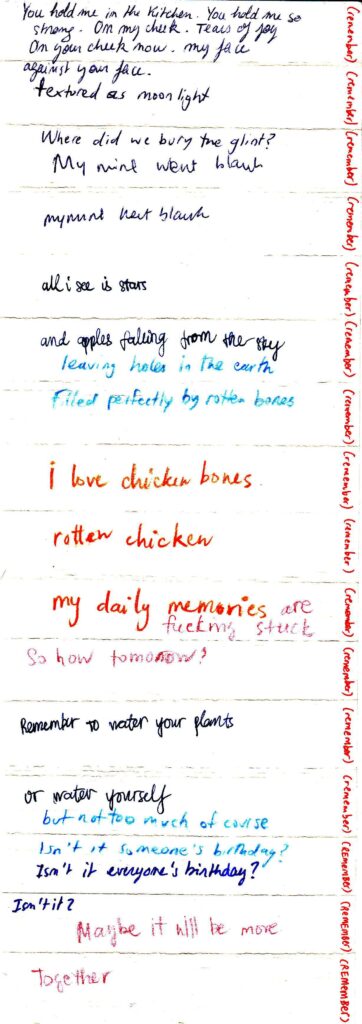 You hold me in the kitchen. You hold me so
strong. On my cheek. Tears of joy
On your cheek now. my face
against your face.
textured as moonlight
Where did we bury the glint?
My mint went blank
my mint went blank
all i see is stars
and apples falling from the sky
leaving holes in the earth
Filled perfectly by rotten bones
i love chicken bones
rotten chicken
my daily memories are
fucking stuck
So how tomorrow?
Remember to water your plants
or water yourself
but not too much of course
Isn't it someone's birthday?
Isn't it everyone's birthday?
Isn't it?
Maybe it will be more
Together
(remember)
(remember)
(remember)
(remember)
(remember)
(remember)
(remember)
(remember)
(remember)
(remember)
(remember)
(remember)
(remember)
(remember)
(REMEMBER)
(REMEMBER)
(REMEMBER)